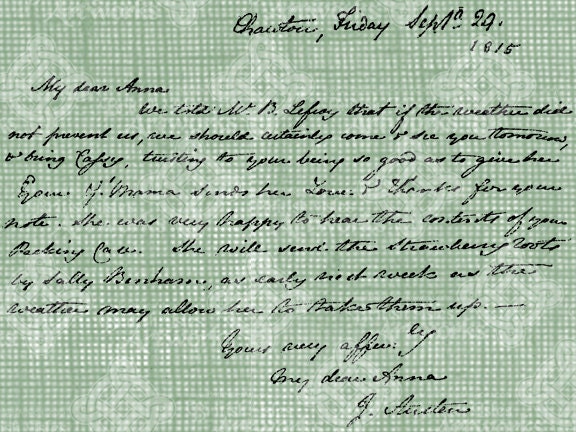 Chawton, Friday Sept. 29.
1815
My dear Anna
We told Mr. B. Lefroy that if the weather did
not prevent us, we should certainly come & see you tomorrow,
& bring Cassy, trusting to your being so good as to give her
Your Mama sends her Love & Thanks for your
note. She was very happy to hear the contents of your
Packing Case. She will send the Strawberry roots
by Sally Benham, as early next week as the
weather may allow her to take them up. —
Yours very affec:ly
my dear Anna
J. Austen